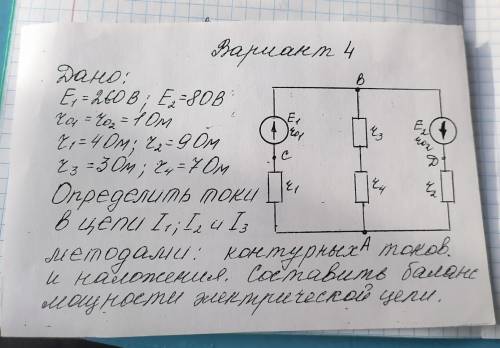 Вариант 4
Дано:
E1=260В; E2=80В
r01=r02=1Ом
r1=4Ом; r2=9Ом
r3=3Ом; r4=7Ом
Определить токи
в цепи I1; I2 и I3
методами: контурных токов
и наложения. Составить баланс
мощности электрической цепи.
B
E1
r01
C
r1
r3
r4
A
E2
r02
D
r2